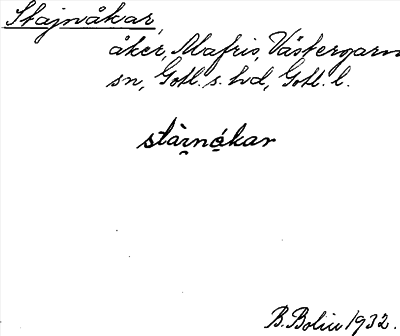 Stajnåkar,
åker, Mafris, Västergarn
sn, Gotl. s. hd, Gotl. l.
stàrnákar
B. Bolin 1932.